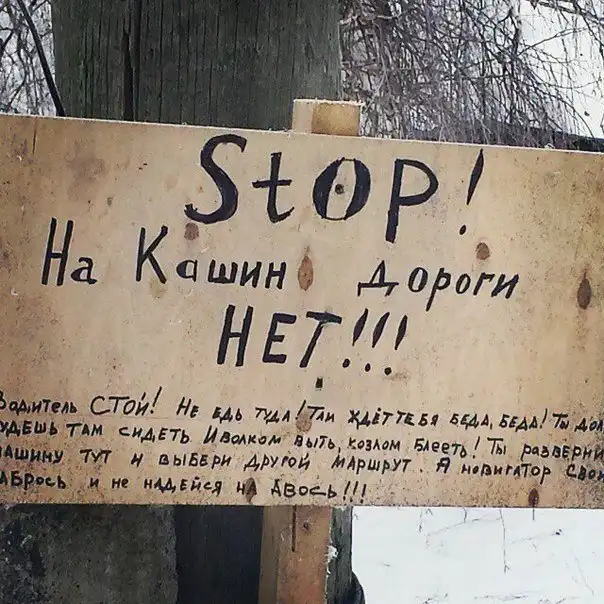 Stop!
На Кашин дороги
НЕТ!!!
Водитель СТОЙ! Не едь туда! Там ждёт тебя беда, беда! Ты дол
удешь там сидеть и волком выть, козлом блееть! Ты разверни
машину тут и выбери другой маршрут. А новигатор свой
аброcь и не надейся на авось!!!